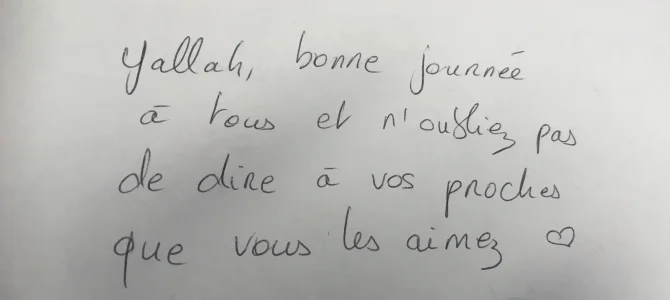 Yallah, bonne journée
à tous et n'oubliez pas
de dire à vos proches
que vous les aimez ♡